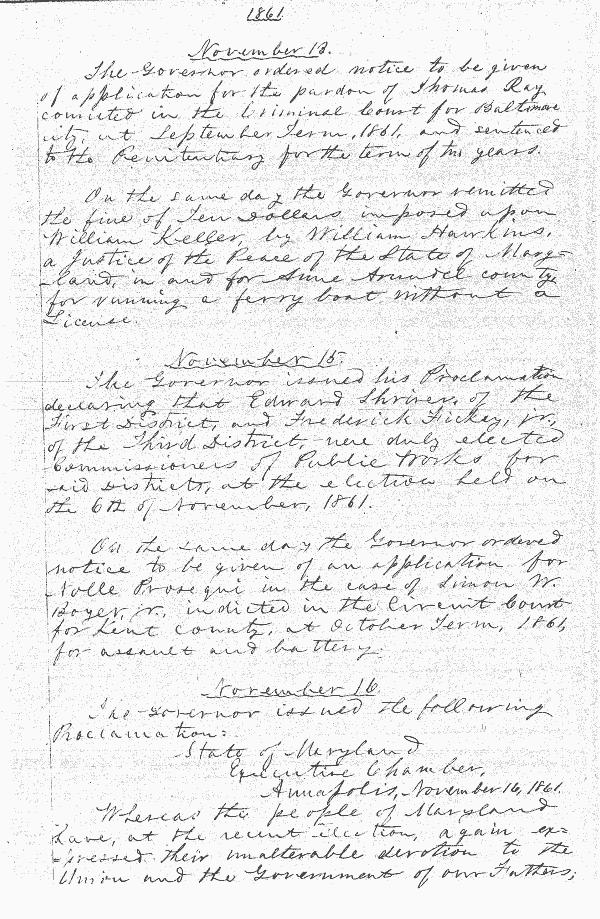 1861.
November 13.
The Governor ordered notice to be given
of application for the pardon of Thomas Ray
convicted in the Criminal Court for Baltimore
city, at September Term, 1861, and sentenced
to the Penitentiary for the term of two years.
On the same day the Governor remitted
the fine of Ten Dollars imposed upon
William Keller, by William Hawkins,
a Justice of the Peace of the State of Mary=
-land, in and for Anne Arundel county,
for running a ferry boat without a
License.
November 15.
The Governor issued his Proclamation
declaring that Edward Shriver, of the
First District, and Frederick Fickey, jr.,
of the Third District, were duly elected
Commissioners of Public Works for
said Districts, at the election held on
the 6th of November, 1861.
On the same day the Governor ordered
notice to be given of an application for
Nolle Prosequi in the case of Simon W.
Boyer, jr., indicted in the Circuit Court
for Kent county, at October Term, 1861,
for assault and battery.
November 16.
The Governor issued the following
Proclamation:
State of Maryland
Executive Chamber,
Annapolis, November 16, 1861.
Whereas the people of Maryland
have, at the recent election, again ex=
-pressed their unalterable devotion to the
Union and the Government of our Fathers;